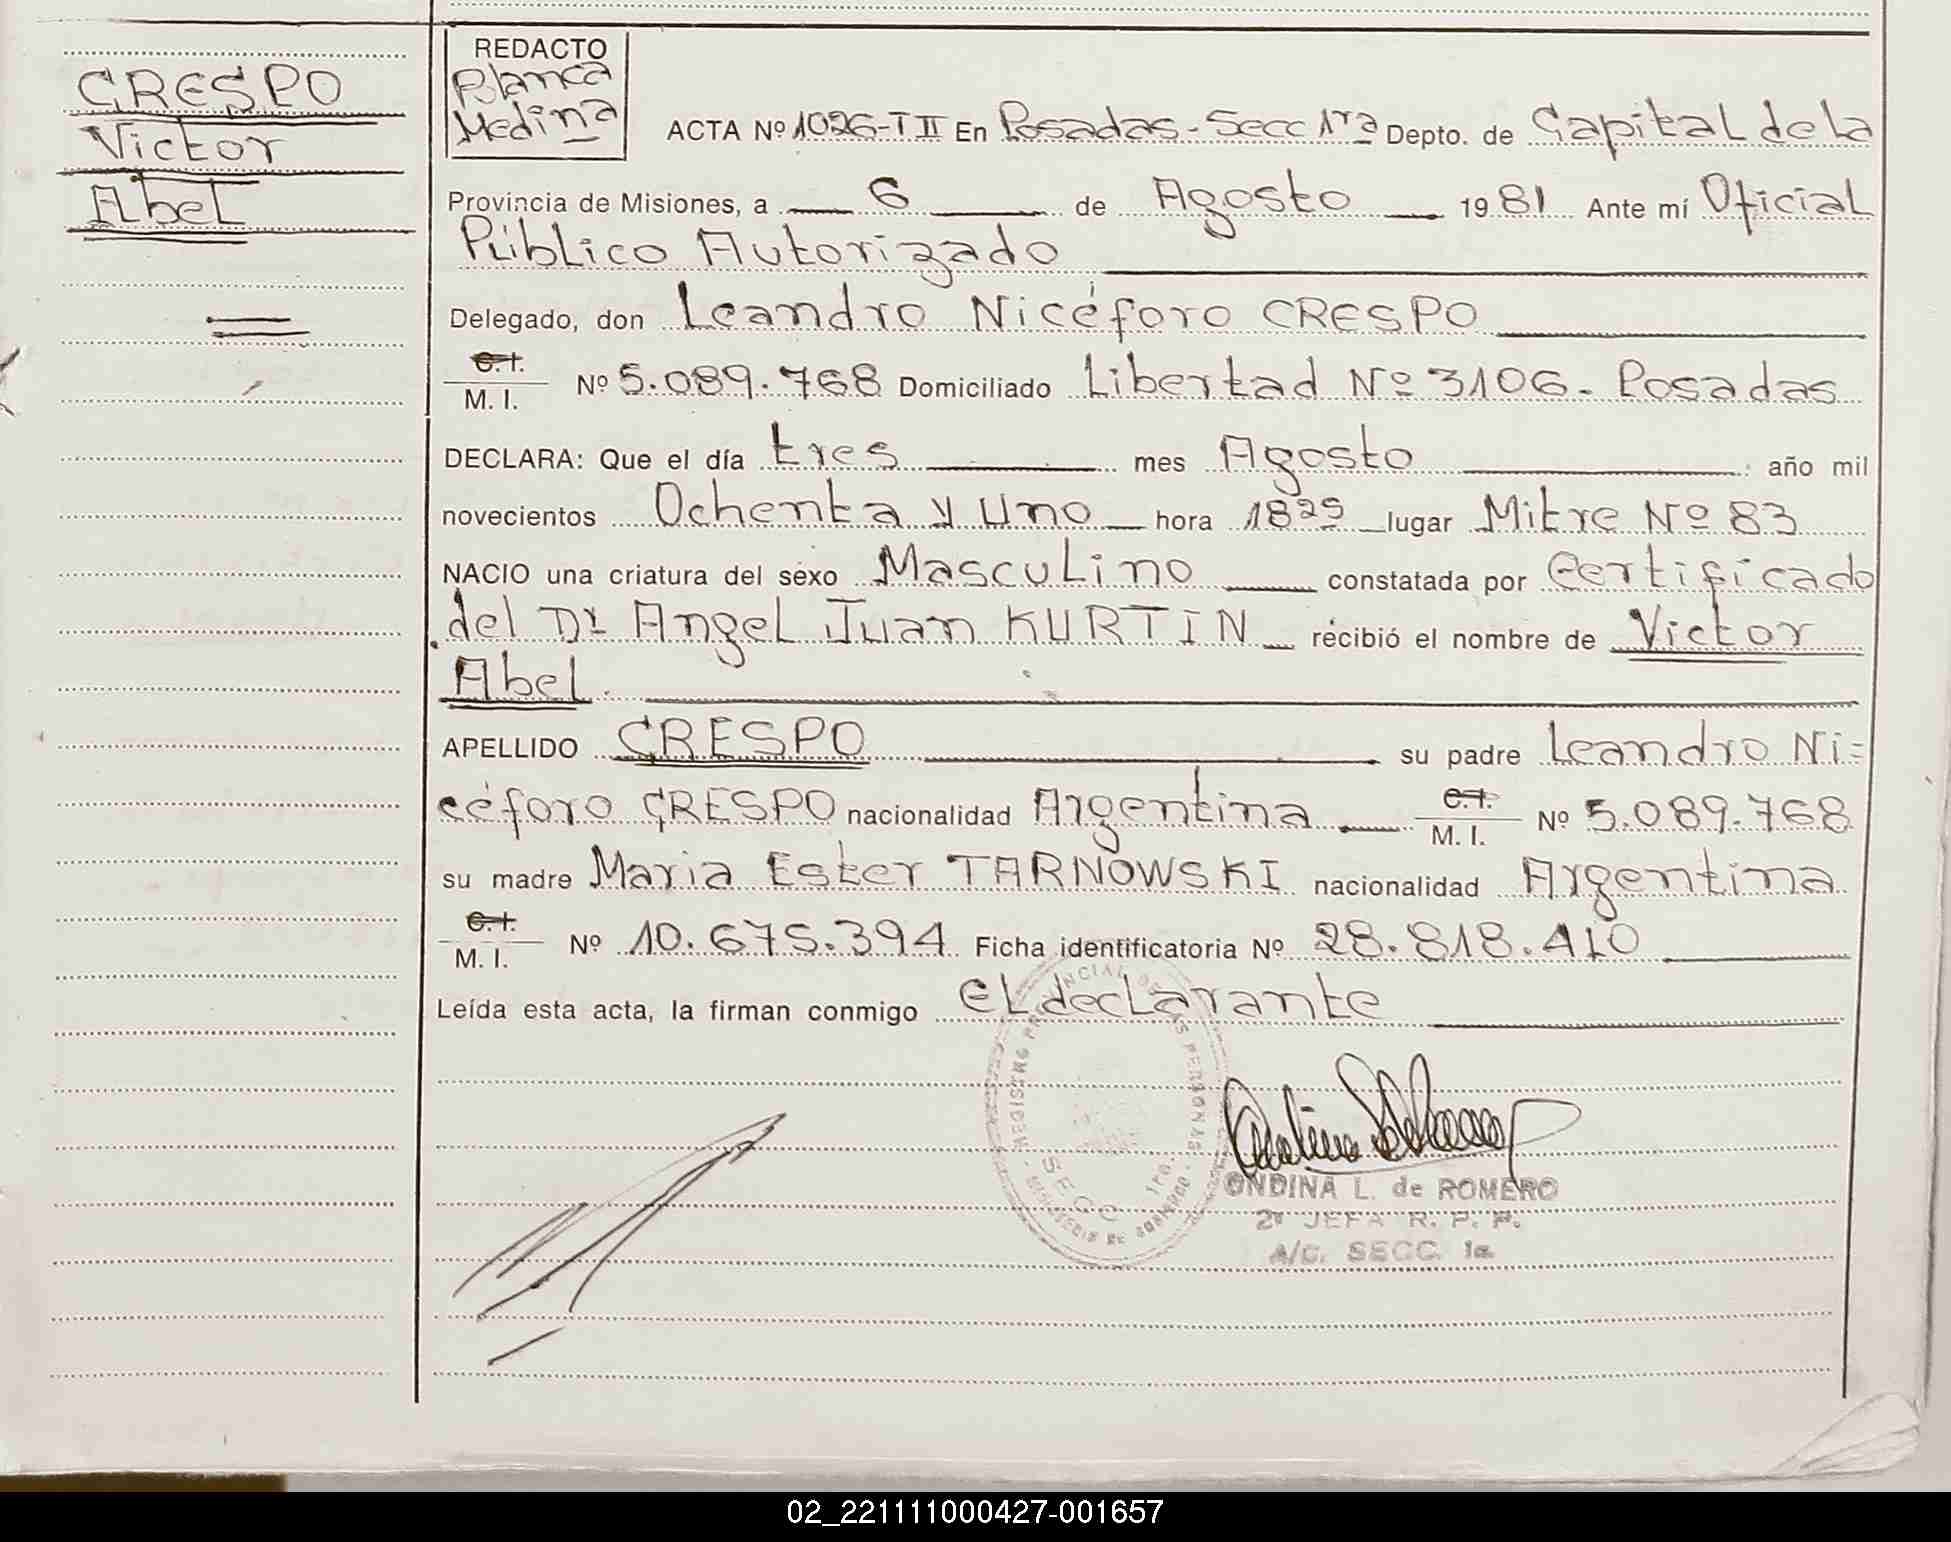 CRESPO
Victor
Abel
REDACTO
Blanca
Medina
ACTA Nº 1026-T II En Posadas-Secc 1ra Depto. de Capital de la
Provincia de Misiones, a 6 de Agosto 1981 Ante mí Oficial
Público Autorizado
Delegado, don Leandro Nicéforo CRESPO
C.I.
M. I. Nº 5.089.768 Domiciliado Libertad Nº 3106. Posadas
DECLARA: Que el día tres mes Agosto año mil
novecientos Ochenta y Uno hora 1825 lugar Mitre Nº 83
NACIO una criatura del sexo Masculino constatada por Certificado
del Dr Angel Juan KURTIN recibió el nombre de Victor
Abel.
APELLIDO CRESPO su padre Leandro Ni=
céforo CRESPO nacionalidad Argentina C.I. M. I. Nº 5.089.768
su madre Maria Ester TARNOWSKI nacionalidad Argentina
C.I.
M. I. Nº 10.675.394 Ficha identificatoria Nº 28.818.410
Leída esta acta, la firman conmigo el declarante
REGISTRO PROVINCIAL DE LAS PERSONAS
SECC 1ra.
MINISTERIO DE GOBIERNO
ONDINA L. de ROMERO
2º JEFA R. P. P.
A/C. SECC. 1a.
02_221111000427-001657